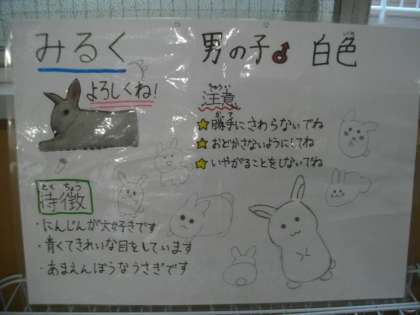 みるく 男の子♂ 白色
よろしくね!
ちゅうい
注意
★勝手にさわらないでね
★おどかさないようにしてね
★いやがることをしないでね
とくちょう
特徴
・にんじんが大好きです
・青くてきれいな目をしています
・あまえんぼうなうさぎです